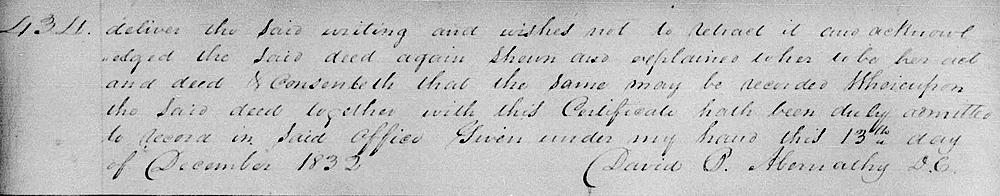 434. deliver the said writing and wishes not to retract it and acknowl
edged the said deed again Shewn and explained to her to be her act
and deed & Consenteth that the same may be recorded Whereupon
the said deed together with this Certificate hath been duly admitted
to record in said office Given under my hand this 13th day
of December 1832 David P. Abernathy D.C.